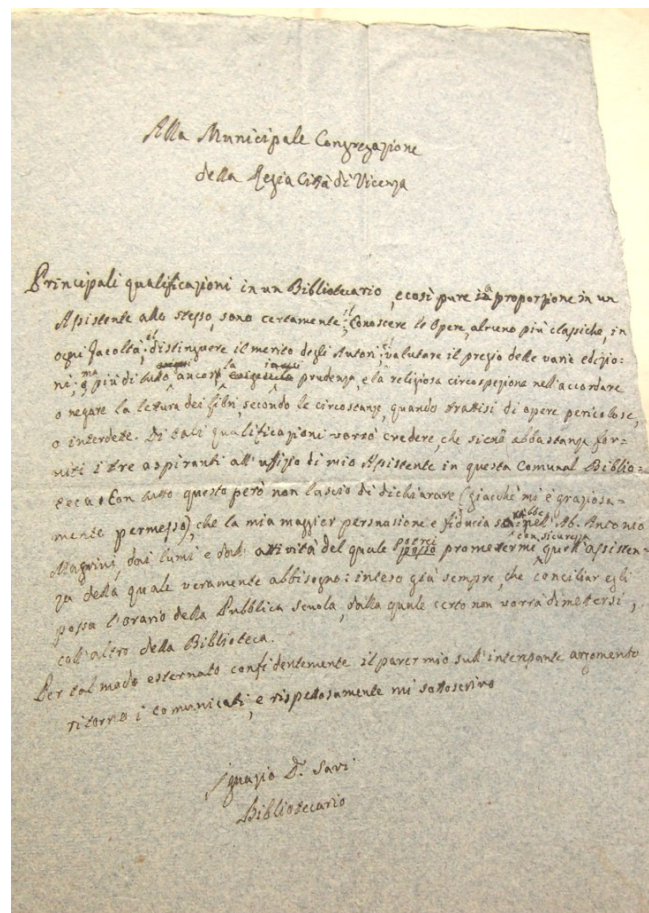 Alla Municipale Congregazione
della Regia Città di Vicenza
Principali qualificazioni in un Bibliotecario, e così pure in proporzione in un
Assistente allo stesso, sono certamente: Conoscere le Opere, almeno più classiche, in
ogni Facoltà: distinguere il merito degli Autori: valutare il pregio delle varie edizio-
ni; ma più di tutto ancora la prudenza, e la religiosa circospezione nell'accordare
o negare la lettura dei libri secondo le circostanze, quando trattisi di opere pericolose,
o interdette. Di tali qualificazioni vorrò credere, che sieno abbastanza for-
niti i tre aspiranti all'uffizio di mio Assistente in questa Comunal Biblio-
teca. Con tutto questo però non lascio di dichiarare (giacchè mi è graziosa-
mente permesso), che la mia maggior persuasione e fiducia sarebbe nell'Ab. Antonio
Magrini, dai lumi e dall'attività del quale potrei posso promettermi con sicurezza quell'assisten-
za della quale veramente abbisogno: inteso già sempre, che conciliar egli
possa l'orario della Pubblica Scuola, dalla quale certo non vorrà dimettersi,
coll'altro della Biblioteca.
Per tal modo esternato confidentemente il parer mio sull'interessante argomento
ritorno i comunicati, e rispettosamente mi sottoscrivo
Ignazio D. Savi
Bibliotecario